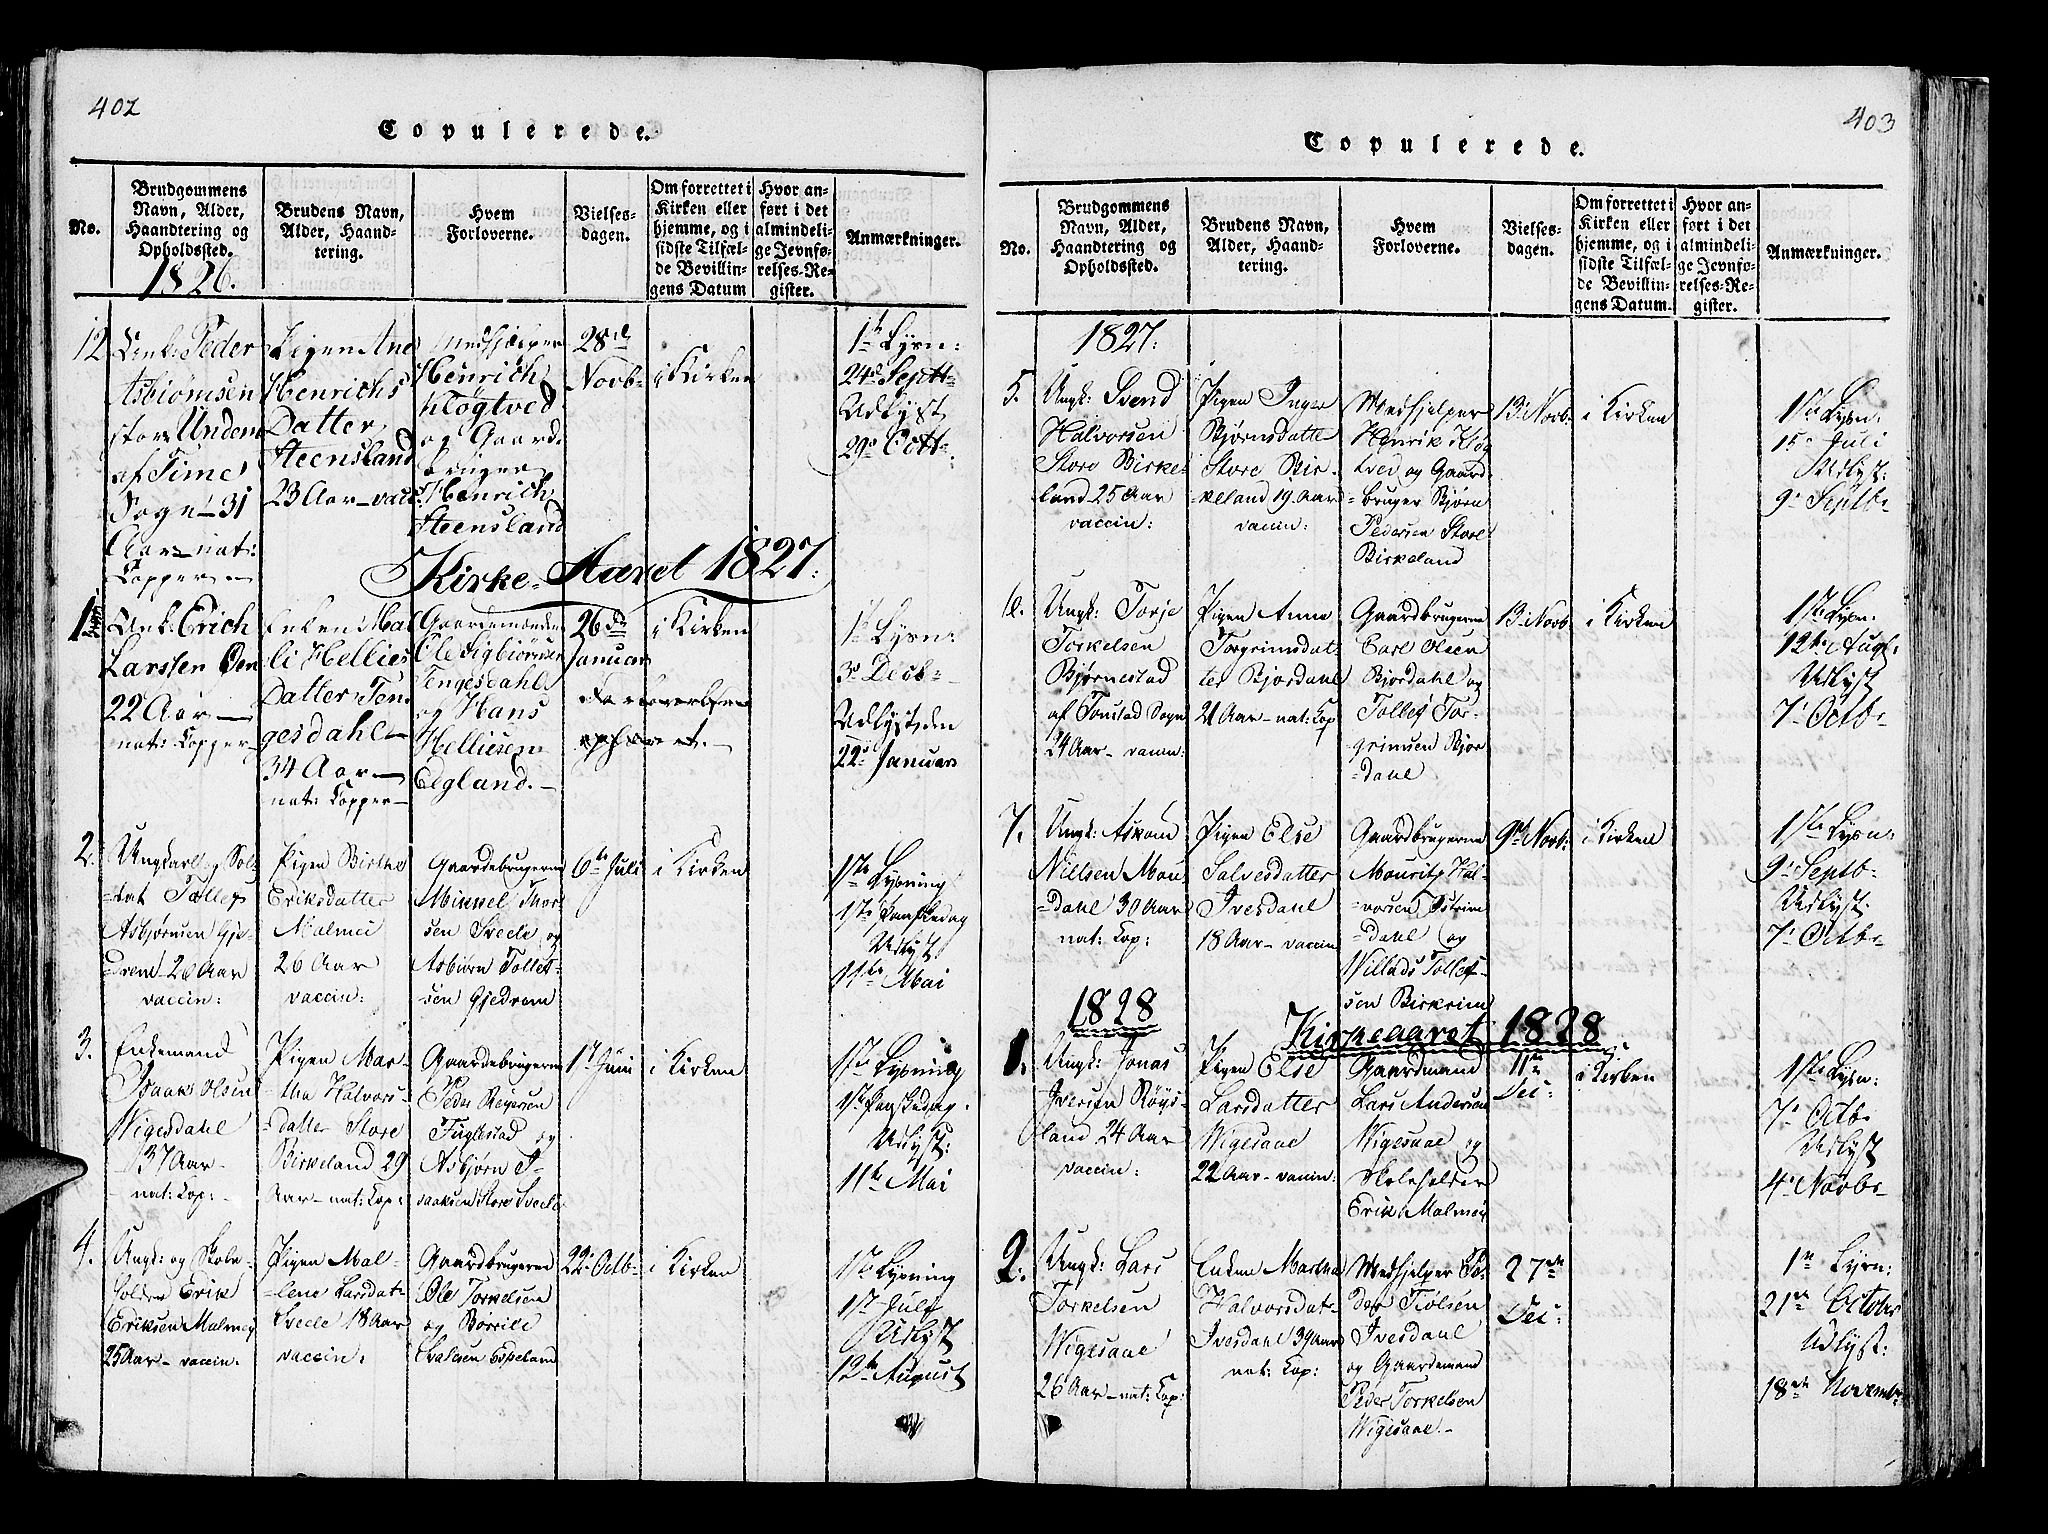 402
Copulerede.
No.
Brudgommens
Navn, Alder,
Haandtering og
Opholdssted.
Brudens Navn,
Alder, Haand-
tering.
Hvem
Forloverne.
Vielses-
dagen.
Om forrettet i
Kirken eller
hjemme, og i
sidste Tilfæl-
de Bevillin-
gens Datum
Hvor an-
ført i det
almindeli-
ge Jevnfø-
relses-Re-
gister.
Anmærkninger.
1826.
12
Enk: Peder
Asbiörnsen
store Undem
af Time
Sogn 31
Aar nat:
Kopper
Pigen Ane
Henrichs
Datter
Steensland
23 Aar vacc
Medhjælper
Henrich
Kløgtved
og Gaard
bruger
Henrich
Steensland
28de
Novb-
i Kirken
1te Lysn:
24de Septt-
Udlyst
29de Octt-
Kirke-Aaret 1827.
1
Unk: Erich
Larssen
22 Aar
nat: Kopper
Enken Mal
li Hellies
Datter Ten
gesdahl
34 Aar
nat: Kopper
Gaardemænden
Ole Sigbiörnsen
Tengesdahl
og Hans
Helliesen
Eegland.
26de
Januar
i Kirken
1te Lysn:
3de Decb-
Udlyst den
22de Januar
2.
Ungkarl og Sol-
dat Tollef
Asbjørnsen Gje-
drem 26 Aar
vaccin:
Pigen Birthe
Eriksdatter
Malmei
26 Aar
vaccin:
Gaardebrugerne
Mikkel Thor
sen Sveele og
Asbiørn Tollef-
sen Gjedrem
6te Juli
i Kirken
1te Lysning
1te Paaskedag
Udlyst
11te Mai
3.
Enkemand
Isaak Olsen
Wigesdahl
37 Aar
nat: Kop:
Pigen Mar-
tha Halvors-
datter Store
Birkeland 29
Aar nat: Kop:
Gaardebrugerne
Peder Reiersen
Fuglestad og
Asbjørn I-
saaksen Store Sveele
1te Juni
i Kirken
1te Lysning
1te Paaskedag.
Udlyst:
11te Mai
4.
Ungk: og Skole-
holder Erik
Eriksen Malmei
25 Aar vaccin:
Pigen Mal-
lene Larsdat-
Sveele 18 Aar
vaccin:
Gaardbrugerne
Ole Torkelsen
og Borrile
Svalesen Espeland
22de Octb-
i Kirken
1te Lysning
1te Juli
Udlyst
12te August
403
Copulerede.
No.
Brudgommens
Navn, Alder,
Haandtering og
Opholdssted.
Brudens Navn,
Alder, Haand-
tering.
Hvem
Forloverne.
Vielses-
dagen.
Om forrettet i
Kirken eller
hjemme, og i
sidste Tilfæl-
de Bevillin-
gens Datum.
Hvor an-
ført i det
almindeli-
ge Jevnfø-
relses-Re-
gister.
Anmærkninger.
1827.
5.
Ungk: Svend
Halvorsen
Store Birke-
land 25 Aar
vaccin:
Pigen Inger
Bjørnsdatter
Store Bir-
keland 19 Aar
vaccin:
Medhjelper
Henrik Kløg
tved og Gaard-
bruger Bjørn
Pedersen Store
Birkeland
13de Novb-
i Kirken
1te Lysn:
15de Juli
Udlyst:
9de Septb-
6.
Ungk: Torje
Torkelsen
Bjørnestad
af Tonstad Sogn
24 Aar vaccin:
Pigen Anne
Torgrimsdat
ter Bjordahl
21 Aar nat: Kop
Gaardbrugerne
Carl Olsen
Bjordahl og
Tollef Tor-
grimsen Bjor
dahl
13de Novb
i Kirken
1te Lysn:
12te Augt-
Udlyst
7de Octb-
7.
Ungk: Askom
Nielsen Mou
dahl 30 Aar
nat: Kop:
Pigen Else
Salvesdatter
Ivesdahl
18 Aar vaccin
Gaardbrugerne
Mouritz Hal-
vorsen Østrim
dahl og
Willads Tollef-
sen Birkrim
9de Novb:
i Kirken
1te Lysn:
9de Septb-
Udlyst:
7de Octb-
1828
Kirkeaaret 1828.
1.
Ungk: Jonas
Iversen Røys-
land 24 Aar
vaccin:
Pigen Else
Larsdatter
Wigesaae
22 Aar vaccin:
Gaardmand
Lars Andersen
Wigesaae og
Skoleholder
Erik Malmei
11te
Dec:
i Kirken
1te Lysn:
7de Octb-
Udlyst
4de Novbr
2.
Ungk: Lars
Torkelsen
Wigesaae
26 Aar nat: Kop:
Enken Martha
Halvorsdat-
Ivesdahl 39 Aar
nat: Kop:
Medhjelper Pe-
der Tiølsen
Ivesdahl
og Gaardemand
Peder Torkelsen
Wigesaae.
27de
Dec:
1te Lysn:
21de Octobr
Udlyst:
18de Novembr